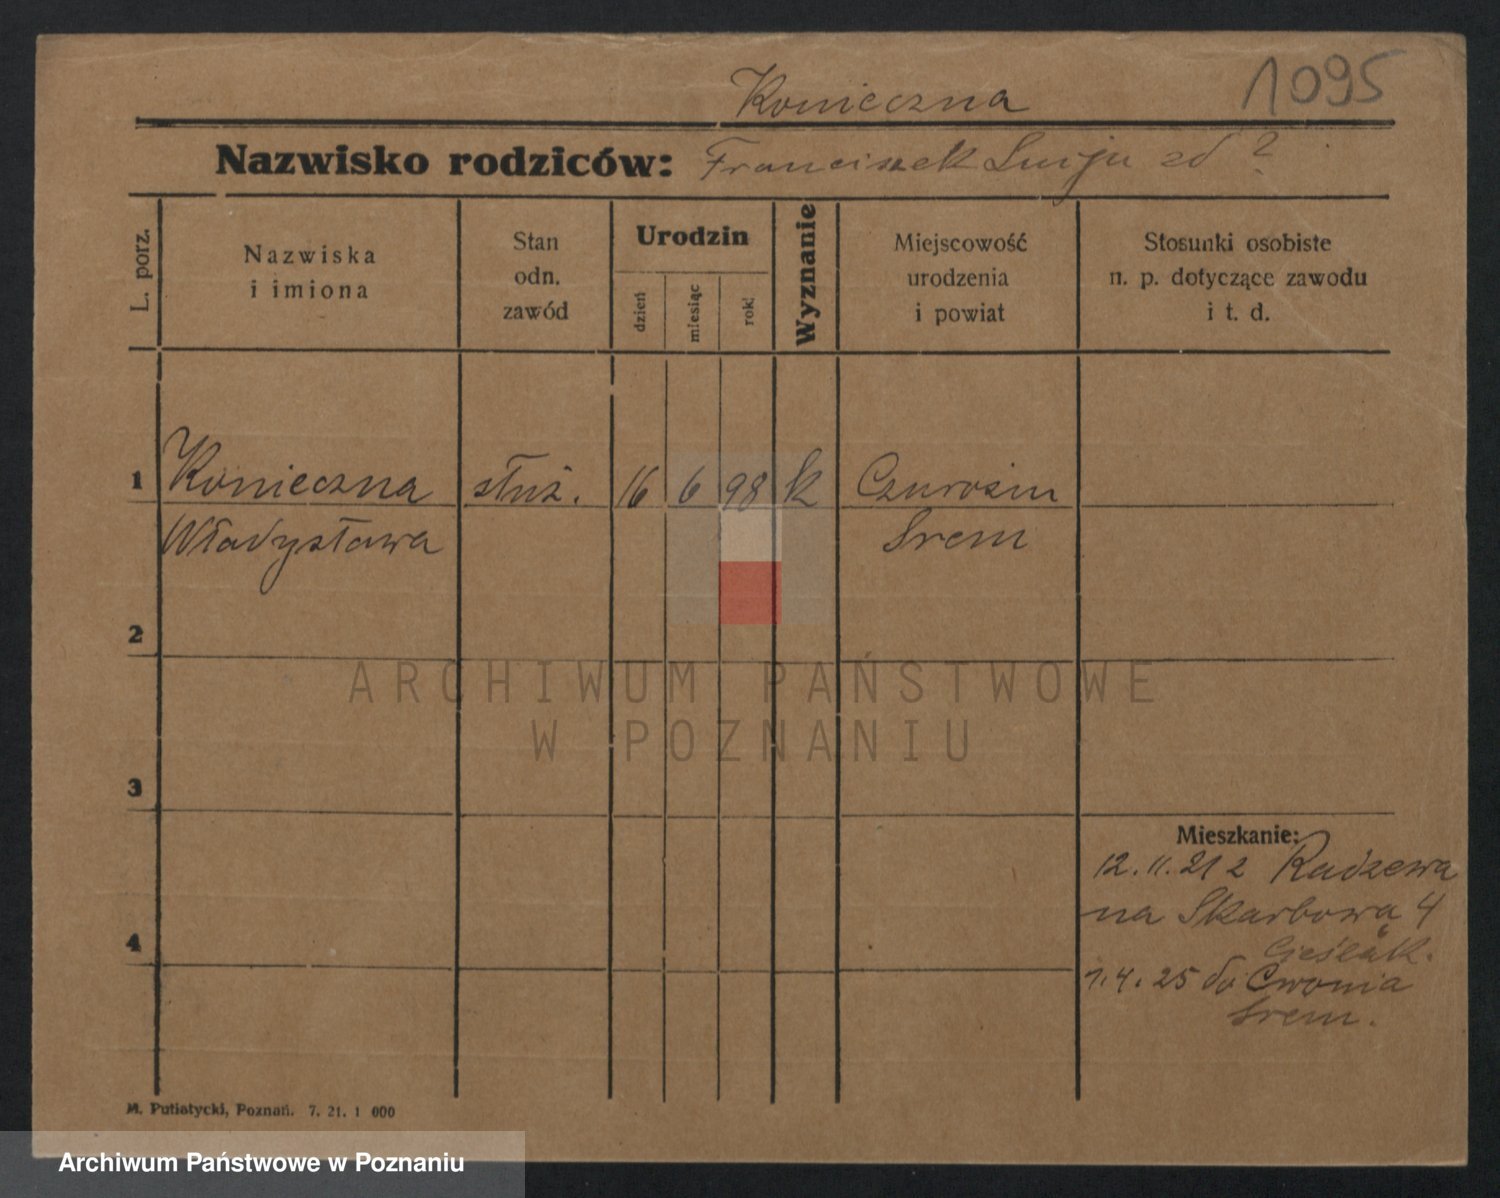 1095
Konieczna
Nazwisko rodziców: Franciszek Luzja zd ?
L. porz.
Nazwiska
i imiona
Stan
odn.
zawód
Urodzin
dzień
miesiąc
rok
Wyznanie
Miejscowość
urodzenia
i powiat
Stosunki osobiste
n. p. dotyczące zawodu
i t. d.
1 Konieczna służ. 16 6 98 k
Władysława Srem
2
3
4
Mieszkanie:
12. 11. 21 z Radzewa
na Skarbową 4
Cieślak.
1. 4. 25 do Cwonia
Srem.
M. Putiatycki, Poznań. 7. 21. 1 000
ARCHIWUM PAŃSTWOWE
W POZNANIU
Archiwum Państwowe w Poznaniu